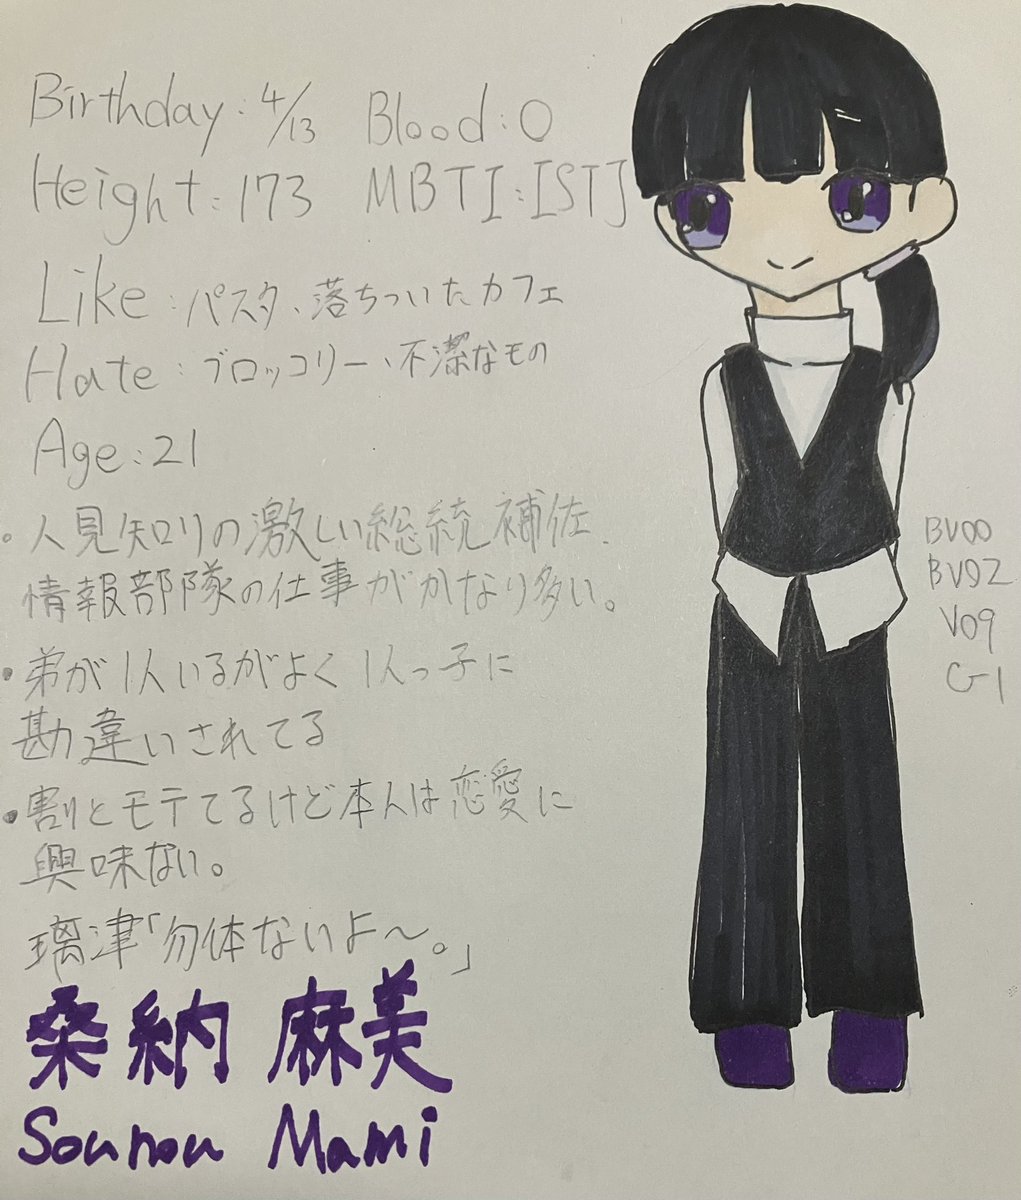 Birthday:4/13 Blood:O
Height:173 MBTI:ISTJ
Like:パスタ、落ちついたカフェ
Hate:ブロッコリー、不潔なもの
Age:21
・人見知りの激しい総統補佐.
情報部隊の仕事がかなり多い。
・弟が1人いるがよく1人っ子に
勘違いされてる
・割とモテてるけど本人は恋愛に
興味ない。
璃津「勿体ないよ〜。」
桑納 麻美
Sounou Mami
BV00
BV02
V09
G1